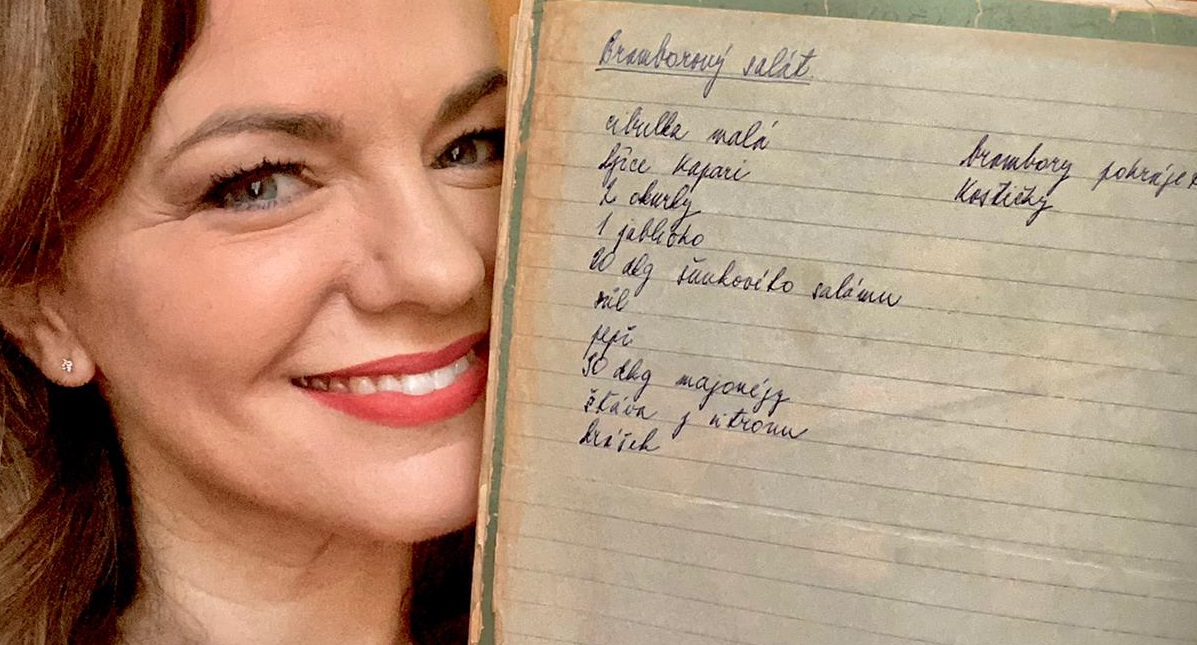 Bramborový salát
cibulka malá
lžíce kapari
2 okurky
1 jabličko
20 dkg šunkového salámu
sůl
pepř
50 dkg majonézy
štáva z citronu
hrášek
brambory pokráje
kostičky